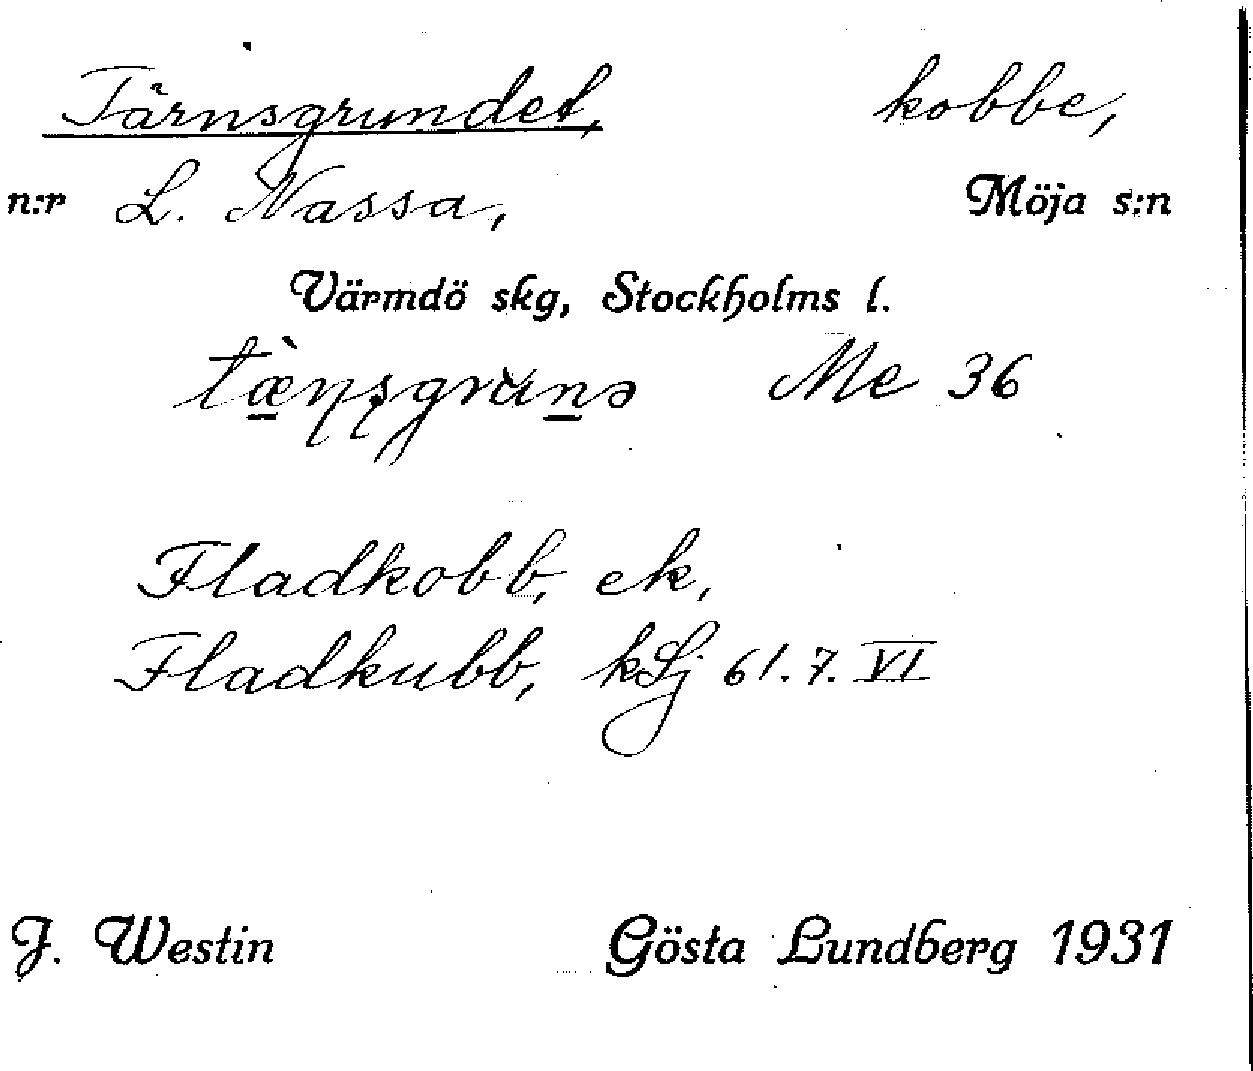 Tärnsgrundet, kobbe,
n:r L. Nassa, Möja s:n
Värmdö skg, Stockholms l.
Me 36
Fladkobb, ek,
Fladkubb, kSj 61.7.VI
J. Westin Gösta Lundberg 1931